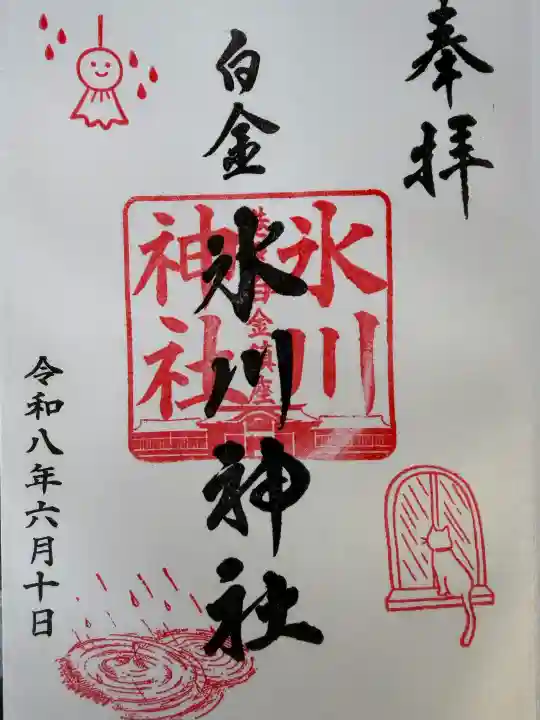 奉拝
白金
氷川神社
氷川
神社
白金鎮座
令和八年六月十日